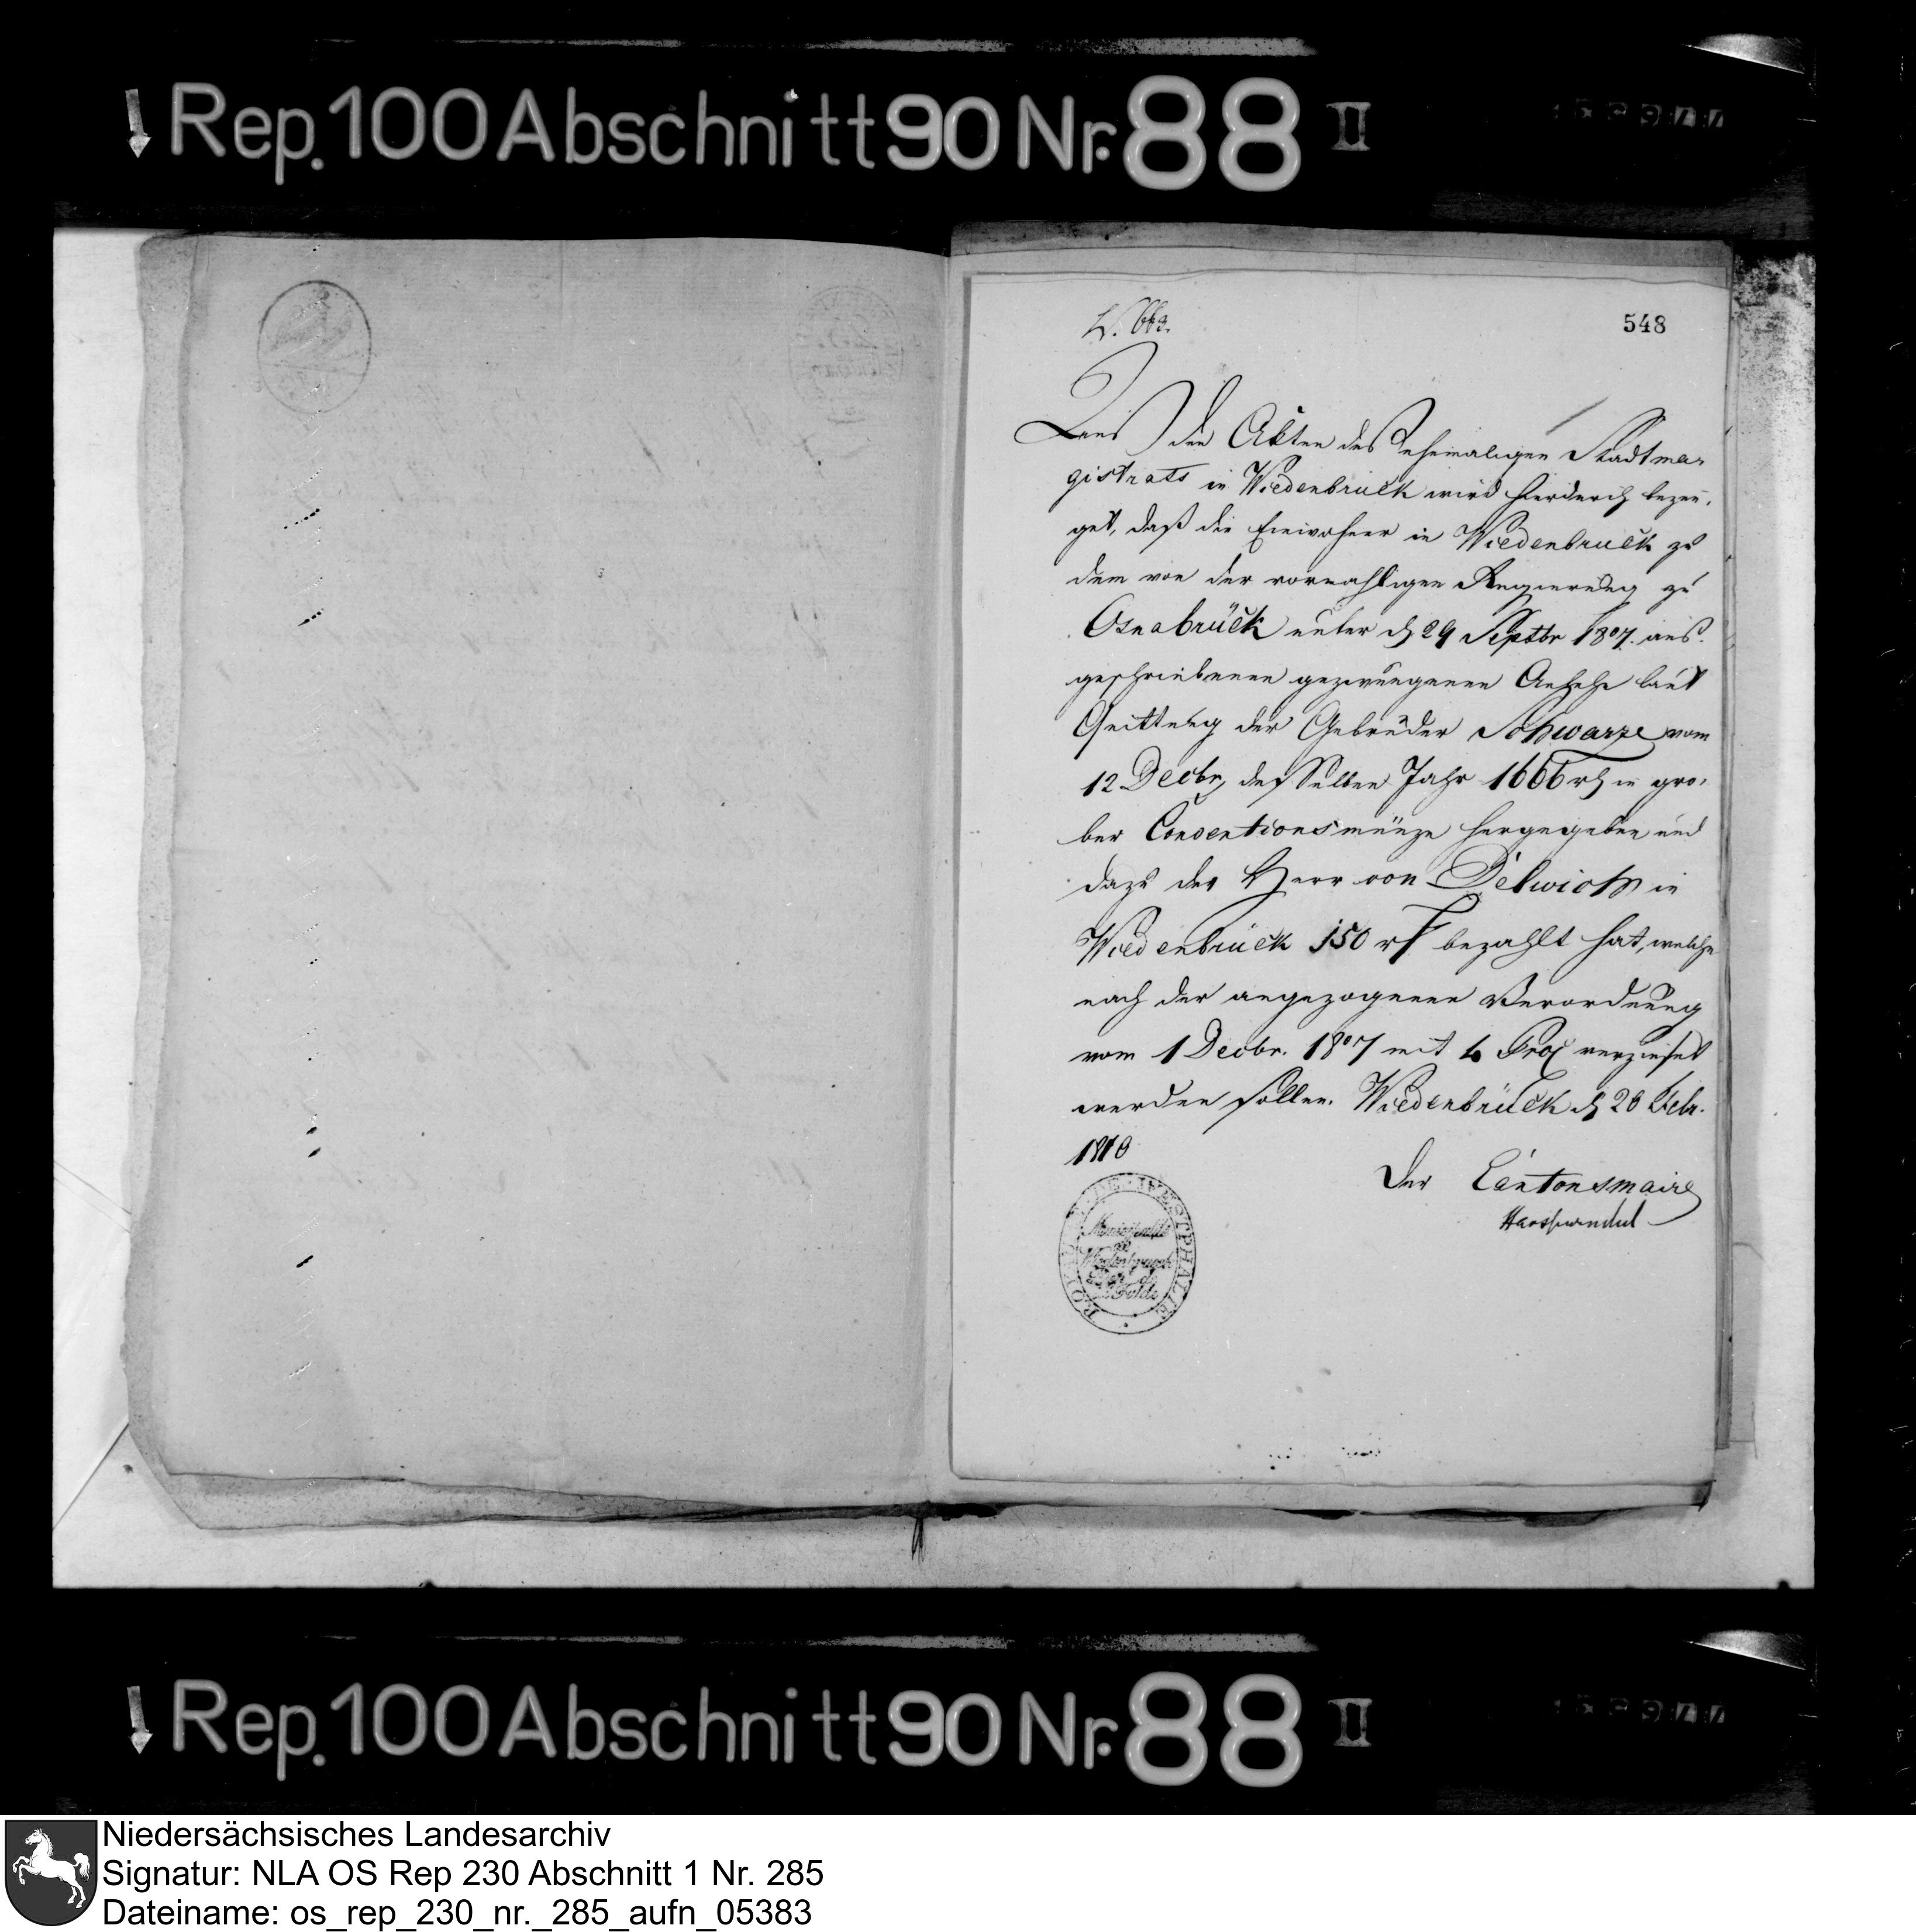 Rep. 100 Abschnitt 90 Nr. 88 II
548
Aus den Akten des ehemaligen Stadtma-
gistrats in Wiedenbrück wird hierdurch bezeu-
get, daß die Einwohner in Wiedenbrück zu
dem von der vormahligen Regierung zu
Osnabrück unter d 29 Septbr 1807. aus-
geschriebenen gezwungenen Anlehe laut
Quittung der Gebrüder Schwarze vom
12 Decbr, desselben Jahr 1666 rh in gro-
ber Conventionsmünze hergegeben und
dazu der Herr von Delwich in
Wiedenbrück 150 rh bezahlt hat, welche
nach der angezogenen Verordnung
vom 1 Decbr. 1807 mit 4 Proc verzinset
werden sollen. Wiedenbrück d 20 Febr.
1810
Der Cantonsmaire
ROYAUME DE WESTPHALIE
Rep. 100 Abschnitt 90 Nr. 88 II
Niedersächsisches Landesarchiv
Signatur: NLA OS Rep 230 Abschnitt 1 Nr. 285
Dateiname: os_rep_230_nr._285_aufn_05383